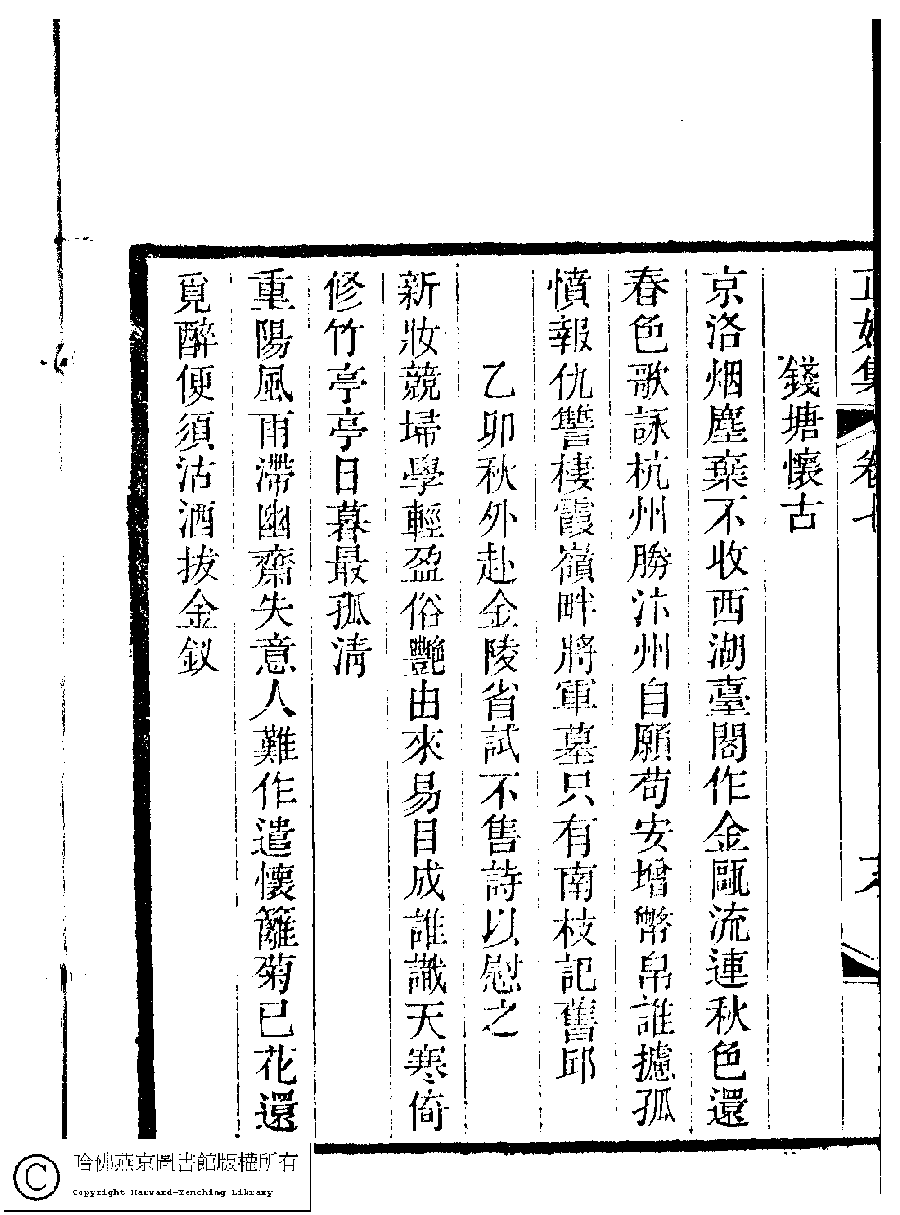 正始集
卷七
錢塘懷古
京洛烟塵棄不收西湖臺閣作金甌流連秋色還
春色歌詠杭州勝汴州自願苟安增幣帛誰攄孤
憤報仇讐棲霞嶺畔將軍墓只有南枝記舊邱
乙卯秋外赴金陵省試不售詩以慰之
新妝競埽學輕盈俗艷由來易目成誰識天寒倚
修竹亭亭日暮最孤清
重陽風雨滯幽齋失意人難作遣懷籬菊已花還
覓醉便須沽酒拔金釵
哈佛燕京圖書館版權所有
Copyright Harvard-Yenching Library